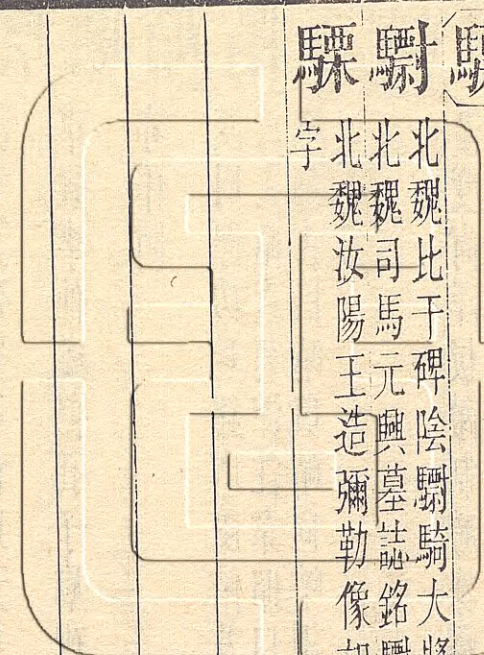 北魏比干碑陰騎大將
北魏司馬元興墓誌銘
北魏汝陽王造彌勒像
字